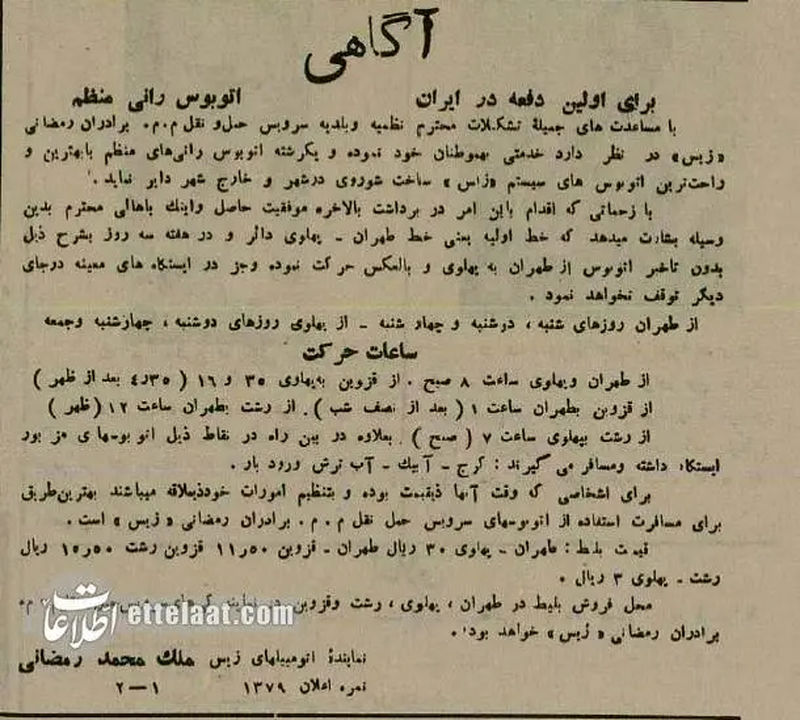 آگاهی
برای اولین دفعه در ایران اتوبوس رانی منظم
با مساعدت های جمیلهٔ تشکیلات محترم نظمیه و بلدیه سرویس حمل و نقل م.م. برادران رمضانی
«زیس» در نظر دارد خدمتی بهموطنان خود نموده و یکرشته اتوبوس رانی‌های منظم با بهترین و
راحت‌ترین اتوبوس های سیستم «زاس» ساخت شوروی در شهر و خارج شهر دایر نماید.
با زحماتی که اقدام باین امر در برداشت بالاخره موفقیت حاصل و اینك باهالی محترم بدین
وسیله بشارت میدهد که خط اولیه یعنی خط طهران - پهلوی دائر و در هفته سه روز بشرح ذیل
بدون تاخیر اتوبوس از طهران به پهلوی و بالعکس حرکت نموده وجز در ایستگاه های معینه در جای
دیگر توقف نخواهد نمود.
از طهران روزهای شنبه، دوشنبه و چهار شنبه - از پهلوی روزهای دوشنبه، چهارشنبه وجمعه
ساعات حرکت
از طهران وپهلوی ساعت ۸ صبح. از قزوین به‌پهلوی ۳۵ و ۱۶ (۴٫۳۵ بعد از ظهر)
از قزوین بطهران ساعت ۱ (بعد از نصف شب). از رشت بطهران ساعت ۱۲ (ظهر)
از رشت بپهلوی ساعت ۷ (صبح). بعلاوه در بین راه در نقاط ذیل اتوبوسهای مزبور
ایستگاه داشته ومسافر می گیرند: کرج - آبیك - آب ترش ورود بار.
برای اشخاصی که وقت آنها ذیقیمت بوده و بتنظیم امورات خود ذیعلاقه میباشند بهترین‌طریق
برای مسافرت استفاده از اتوبوسهای سرویس حمل نقل م.م. برادران رمضانی «زیس» است.
قیمت بلط: طهران - پهلوی ۳۰ ریال طهران - قزوین ۱۱٫۵۰ قزوین رشت ۱۵٫۵۰ ریال
رشت - پهلوی ۳ ریال.
محل فروش بلیط در طهران، پهلوی، رشت وقزوین در
برادران رمضانی «زیس» خواهد بود.
نمایندهٔ اتومبیلهای زیس ملك محمد رمضانی
نمره اعلان ۱۳۷۹ ۱—۲
اطلاعات ettelaat.com